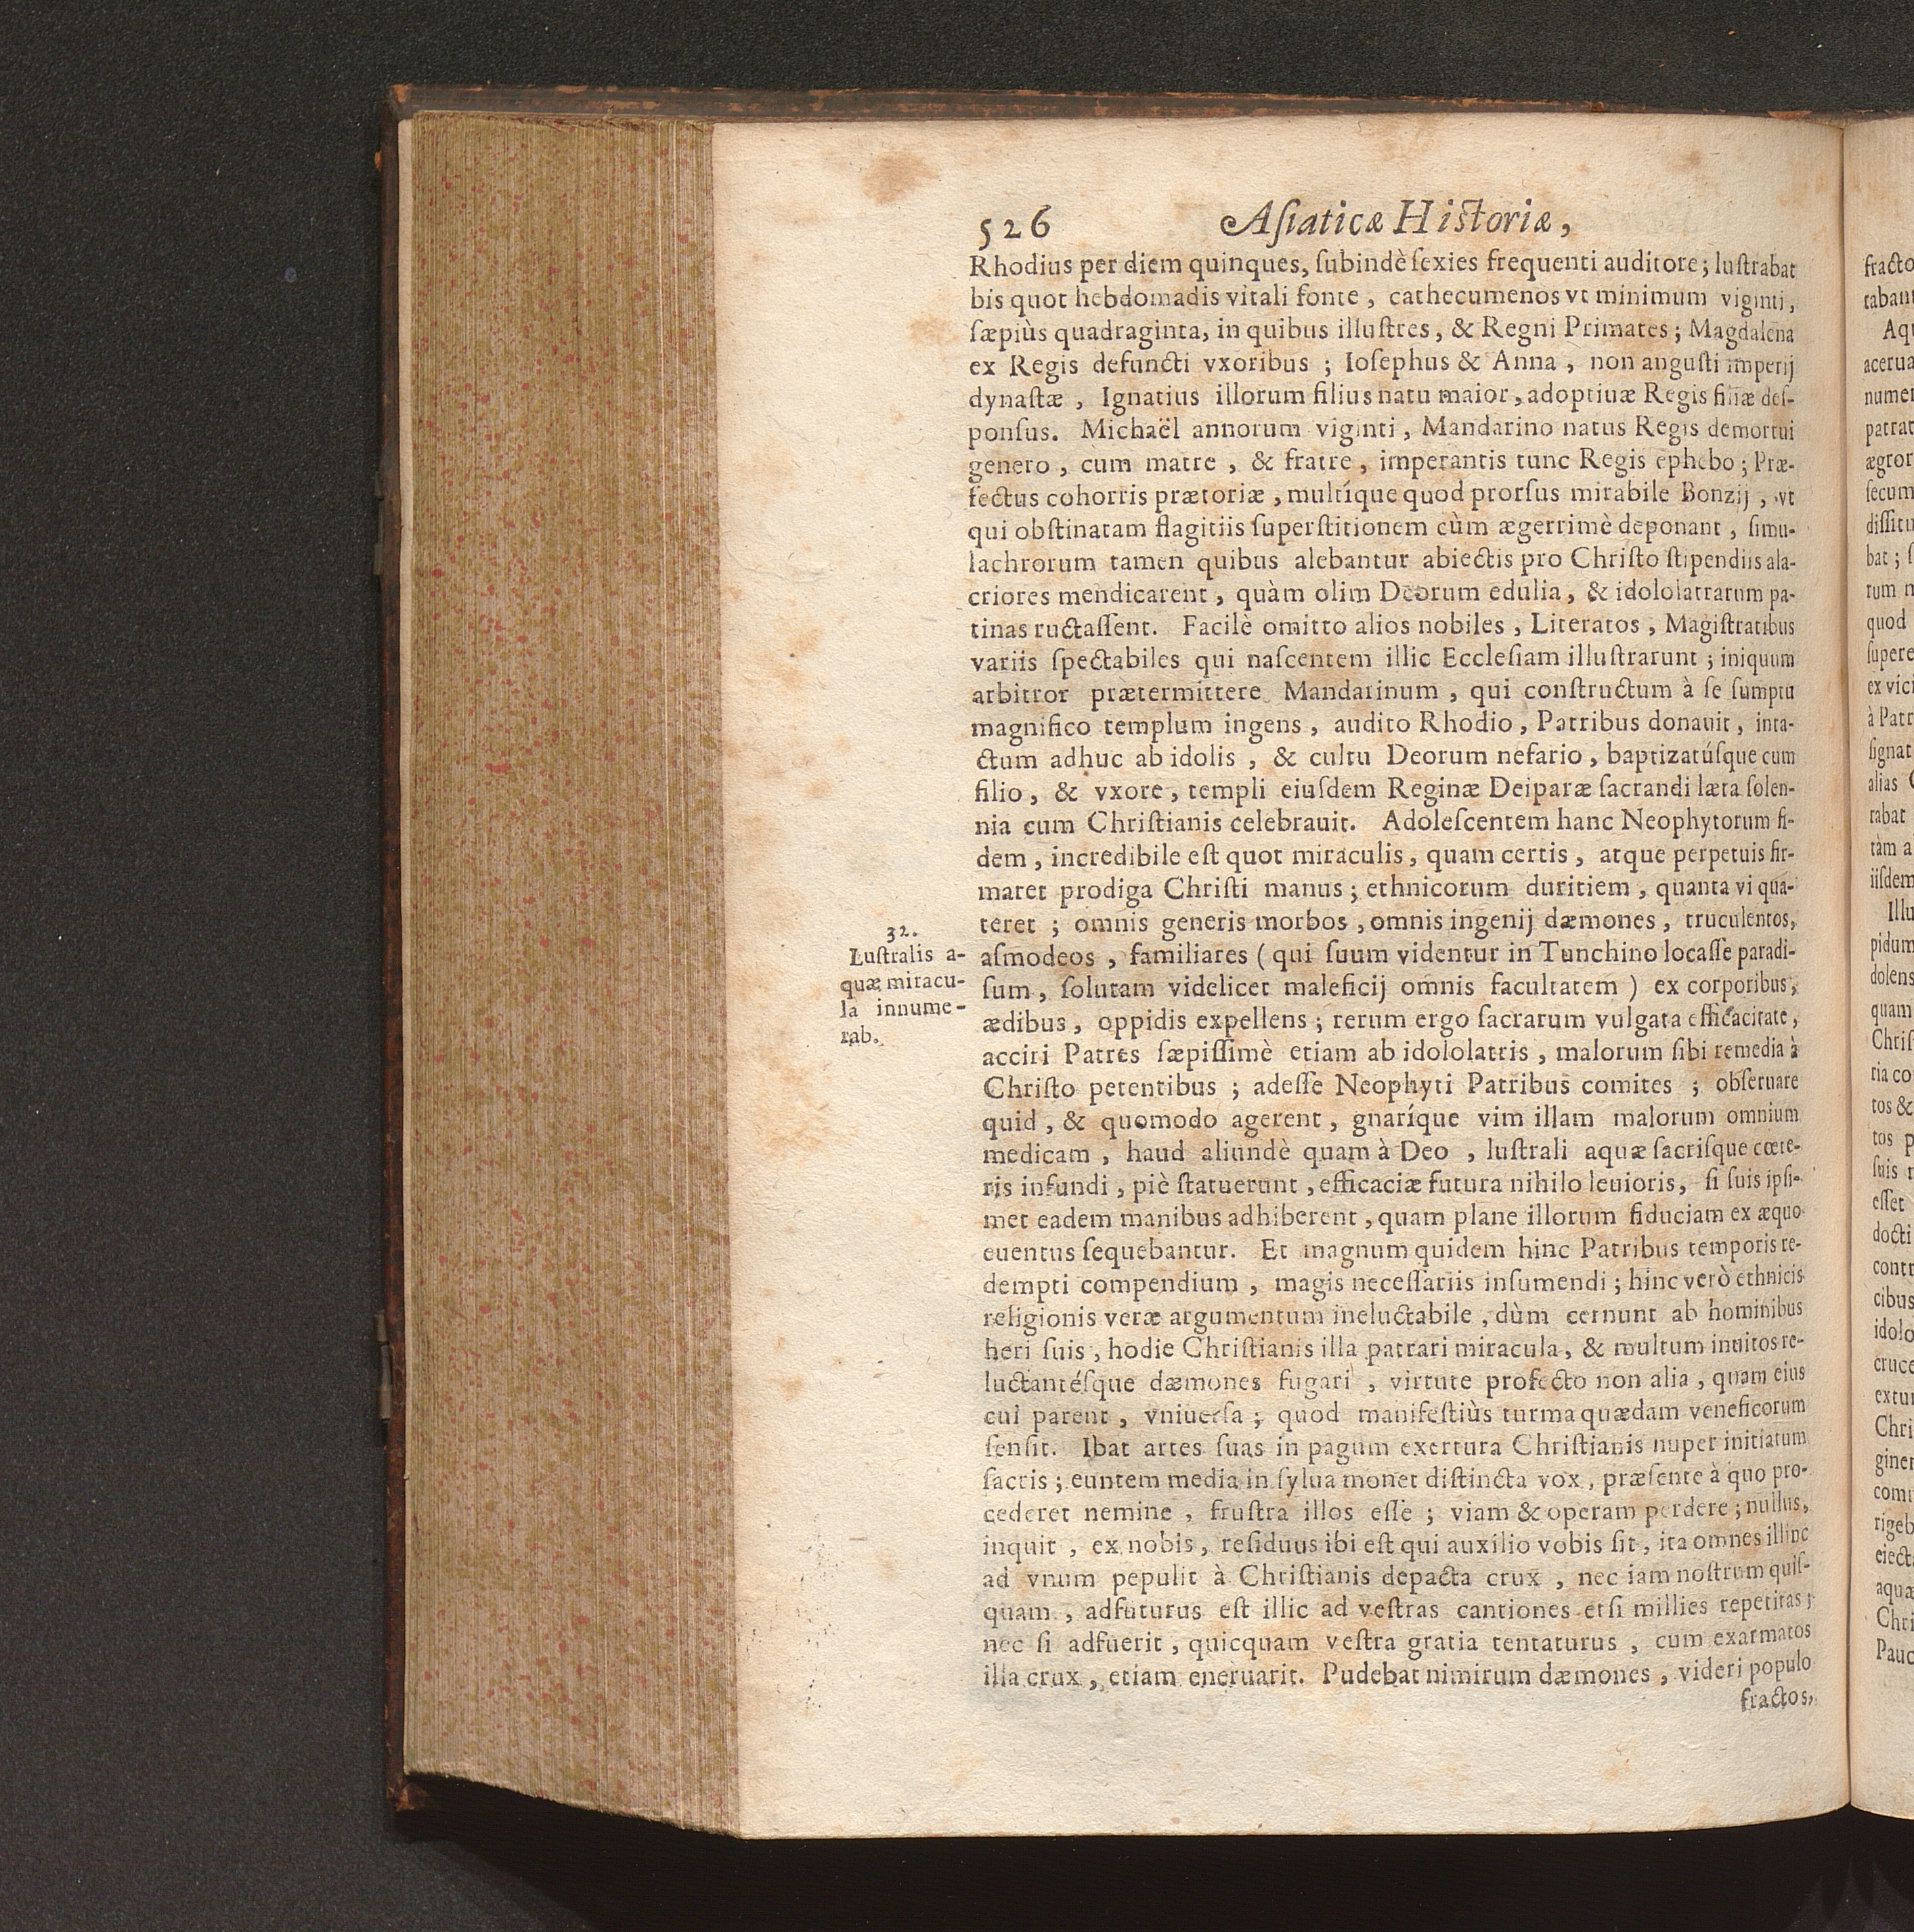 526 Aſiaticæ Hiſtoriæ,
Rhodius per diem quinques, ſubindè ſexies frequenti auditore; luſtrabat
bis quot hebdomadis vitali fonte, cathecumenos vt minimum viginti,
ſæpiùs quadraginta, in quibus illuſtres, & Regni Primates; Magdalena
ex Regis defuncti vxoribus; Ioſephus & Anna, non anguſti imperij
dynaſtæ, Ignatius illorum filius natu maior, adoptiuæ Regis filiæ deſ-
ponſus. Michaël annorum viginti, Mandarino natus Regis demortui
genero, cum matre, & fratre, imperantis tunc Regis ephebo; Præ-
fectus cohortis prætoriæ, multíque quod prorſus mirabile Bonzij, vt
qui obſtinatam flagitiis ſuperſtitionem cùm ægerrimè deponant, ſimu-
lachrorum tamen quibus alebantur abiectis pro Chriſto ſtipendiis ala-
criores mendicarent, quàm olim Deorum edulia, & idololatrarum pa-
tinas ructaſſent. Facilè omitto alios nobiles, Literatos, Magiſtratibus
variis ſpectabiles qui naſcentem illic Eccleſiam illuſtrarunt; iniquum
arbitror prætermittere Mandarinum, qui conſtructum à ſe ſumptu
magnifico templum ingens, audito Rhodio, Patribus donauit, inta-
ctum adhuc ab idolis, & cultu Deorum nefario, baptizatúſque cum
filio, & vxore, templi eiuſdem Reginæ Deiparæ ſacrandi læta ſolen-
nia cum Chriſtianis celebrauit. Adoleſcentem hanc Neophytorum fi-
dem, incredibile eſt quot miraculis, quam certis, atque perpetuis fir-
maret prodiga Chriſti manus; ethnicorum duritiem, quanta vi qua-
teret; omnis generis morbos, omnis ingenij dæmones, truculentos,
aſmodeos, familiares (qui ſuum videntur in Tunchino locaſſe paradi-
ſum, ſolutam videlicet maleficij omnis facultatem) ex corporibus,
ædibus, oppidis expellens; rerum ergo ſacrarum vulgata efficacitate,
acciri Patres ſæpiſſimè etiam ab idololatris, malorum ſibi remedia à
Chriſto petentibus; adeſſe Neophyti Patribus comites; obſeruare
quid, & quomodo agerent, gnaríque vim illam malorum omnium
medicam, haud aliundè quam à Deo, luſtrali aquæ ſacriſque cœte-
ris infundi, piè ſtatuerunt, efficaciæ futura nihilo leuioris, ſi ſuis ipſi-
met eadem manibus adhiberent, quam plane illorum fiduciam ex æquo
euentus ſequebantur. Et magnum quidem hinc Patribus temporis re-
dempti compendium, magis neceſſariis inſumendi; hinc verò ethnicis
religionis veræ argumentum ineluctabile, dùm cernunt ab hominibus
heri ſuis, hodie Chriſtianis illa patrari miracula, & multum inuitos re-
luctantéſque dæmones fugari, virtute profecto non alia, quam eius
cui parent, vniuerſa; quod manifeſtiùs turma quædam veneficorum
ſenſit. Ibat artes ſuas in pagum exertura Chriſtianis nuper initiatum
ſacris; euntem media in ſylua monet diſtincta vox, præſente à quo pro-
cederet nemine, fruſtra illos eſſe; viam & operam perdere; nullus,
inquit, ex nobis, reſiduus ibi eſt qui auxilio vobis ſit, ita omnes illinc
ad vnum pepulit à Chriſtianis depacta crux, nec iam noſtrum quiſ-
quam, adfuturus eſt illic ad veſtras cantiones etſi millies repetitas;
nec ſi adfuerit, quicquam veſtra gratia tentaturus, cum exarmatos
illa crux, etiam eneruarit. Pudebat nimirum dæmones, videri populo
fractos,
32.
Luſtralis a-
quæ miracu-
la innume-
rab.
fracto
tabant
Aqu
acerua
numer
patrat
ægror
ſecum
diſſitu
bat; ſ
rum m
quod
ſupere
ex vici
à Patr
ſignat
alias C
rabat
tàm a
iiſdem
Illu
pidum
dolens
quam
Chriſ
tia co
tos &
tos p
ſuis r
eſſet
docti
contr
cibus
idolo
cruce
extur
Chri
giner
comi
rigeb
eiecta
aquæ
Chri
Pauc